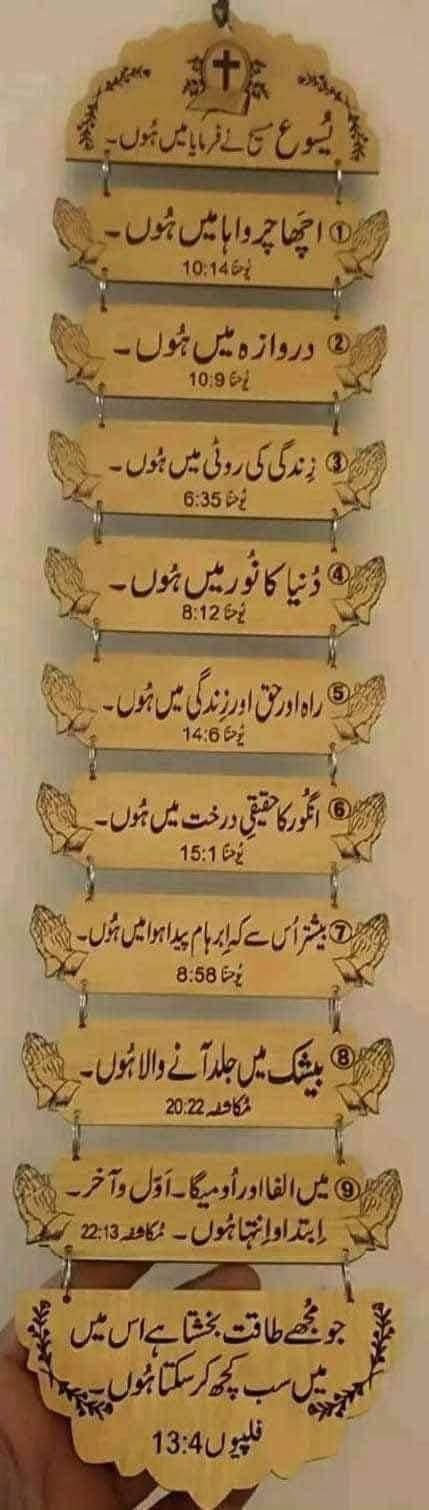 یسُوع مسیح نے فرمایا میں ہُوں۔
① اچھّا چرواہا میں ہُوں۔
یُوحنّا 10:14
② دروازہ میں ہُوں۔
یُوحنّا 10:9
③ زِندگی کی روٹی میں ہُوں۔
یُوحنّا 6:35
④ دُنیا کا نُور میں ہُوں۔
یُوحنّا 8:12
⑤ راہ اور حق اور زِندگی میں ہُوں۔
یُوحنّا 14:6
⑥ انگُور کا حقیقی درخت میں ہُوں۔
یُوحنّا 15:1
⑦ بیشتر اُس سے کہ ابرہام پیدا ہوا میں ہُوں۔
یُوحنّا 8:58
⑧ بیشک میں جلد آنے والا ہُوں۔
مُکاشفہ 20:22
⑨ میں الفا اور اُومیگا۔ اَوّل و آخر۔
اِبتدا و اِنتہا ہُوں۔ مُکاشفہ 22:13
جو مُجھے طاقت بخشتا ہے اس میں
میں سب کچھ کر سکتا ہُوں۔
فلپیوں 13:4